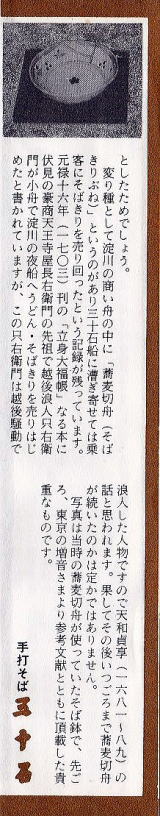 としたためでしょう。
　変り種として淀川の商い舟の中に「蕎麦切舟（そば
きりぶね）」というのがあり三十石船に漕ぎ寄せては乗
客にそばきりを売り回ったという記録が残っています。
元禄十六年（一七〇三）刊の「立身大福帳」なる本に
伏見の豪商天王寺屋長右衛門の先祖で越後浪人只右衛
門が小舟で淀川の夜船へうどん・そばきりを売りはじ
めたと書かれていますが、この只右衛門は越後騒動で
浪人した人物ですので天和貞享（一六八一〜八九）の
話と思われます。果してその後いつごろまで蕎麦切舟
が続いたのかは定かではありません。
　写真は当時の蕎麦切舟が使っていたそば鉢で、先ご
ろ、東京の増音さまより参考文献とともに頂載した貴
重なものです。
手打そば
五十石